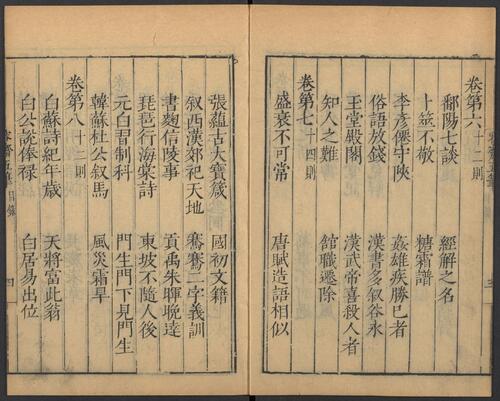 卷第六 十二則
鄱陽七談 經解之名
卜筮不敬 糖霜譜
李彦僊守陝 姦雄疾勝已者
俗語放錢 漢書多叙谷永
玉堂殿閣 漢武帝喜殺人者
知人之難 館職遷除
卷第七 十四則
盛衰不可常 唐賦造語相似
張蘊古大寶箴 國初文籍
叙西漢郊祀天地 騫鶱二字義訓
書麴信陵事 貢禹朱暉晚達
琵琶行海棠詩 東坡不隨人後
元白習制科 門生門下見門生
韓蘇杜公叙馬 風災霜旱
卷第八 十二則
白蘇詩紀年歲 天將富此翁
白公說俸禄 白居易出位
目錄 四